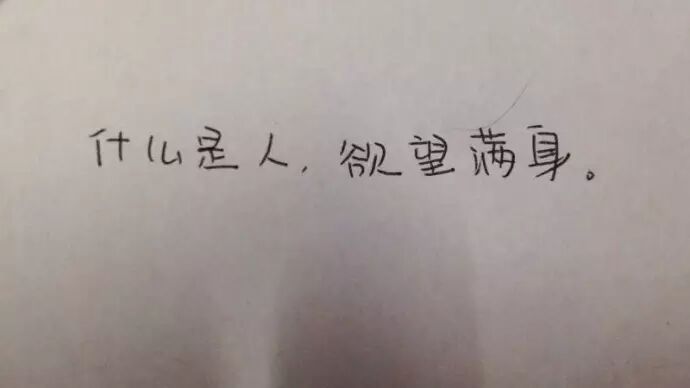 什么是人,欲望满身。